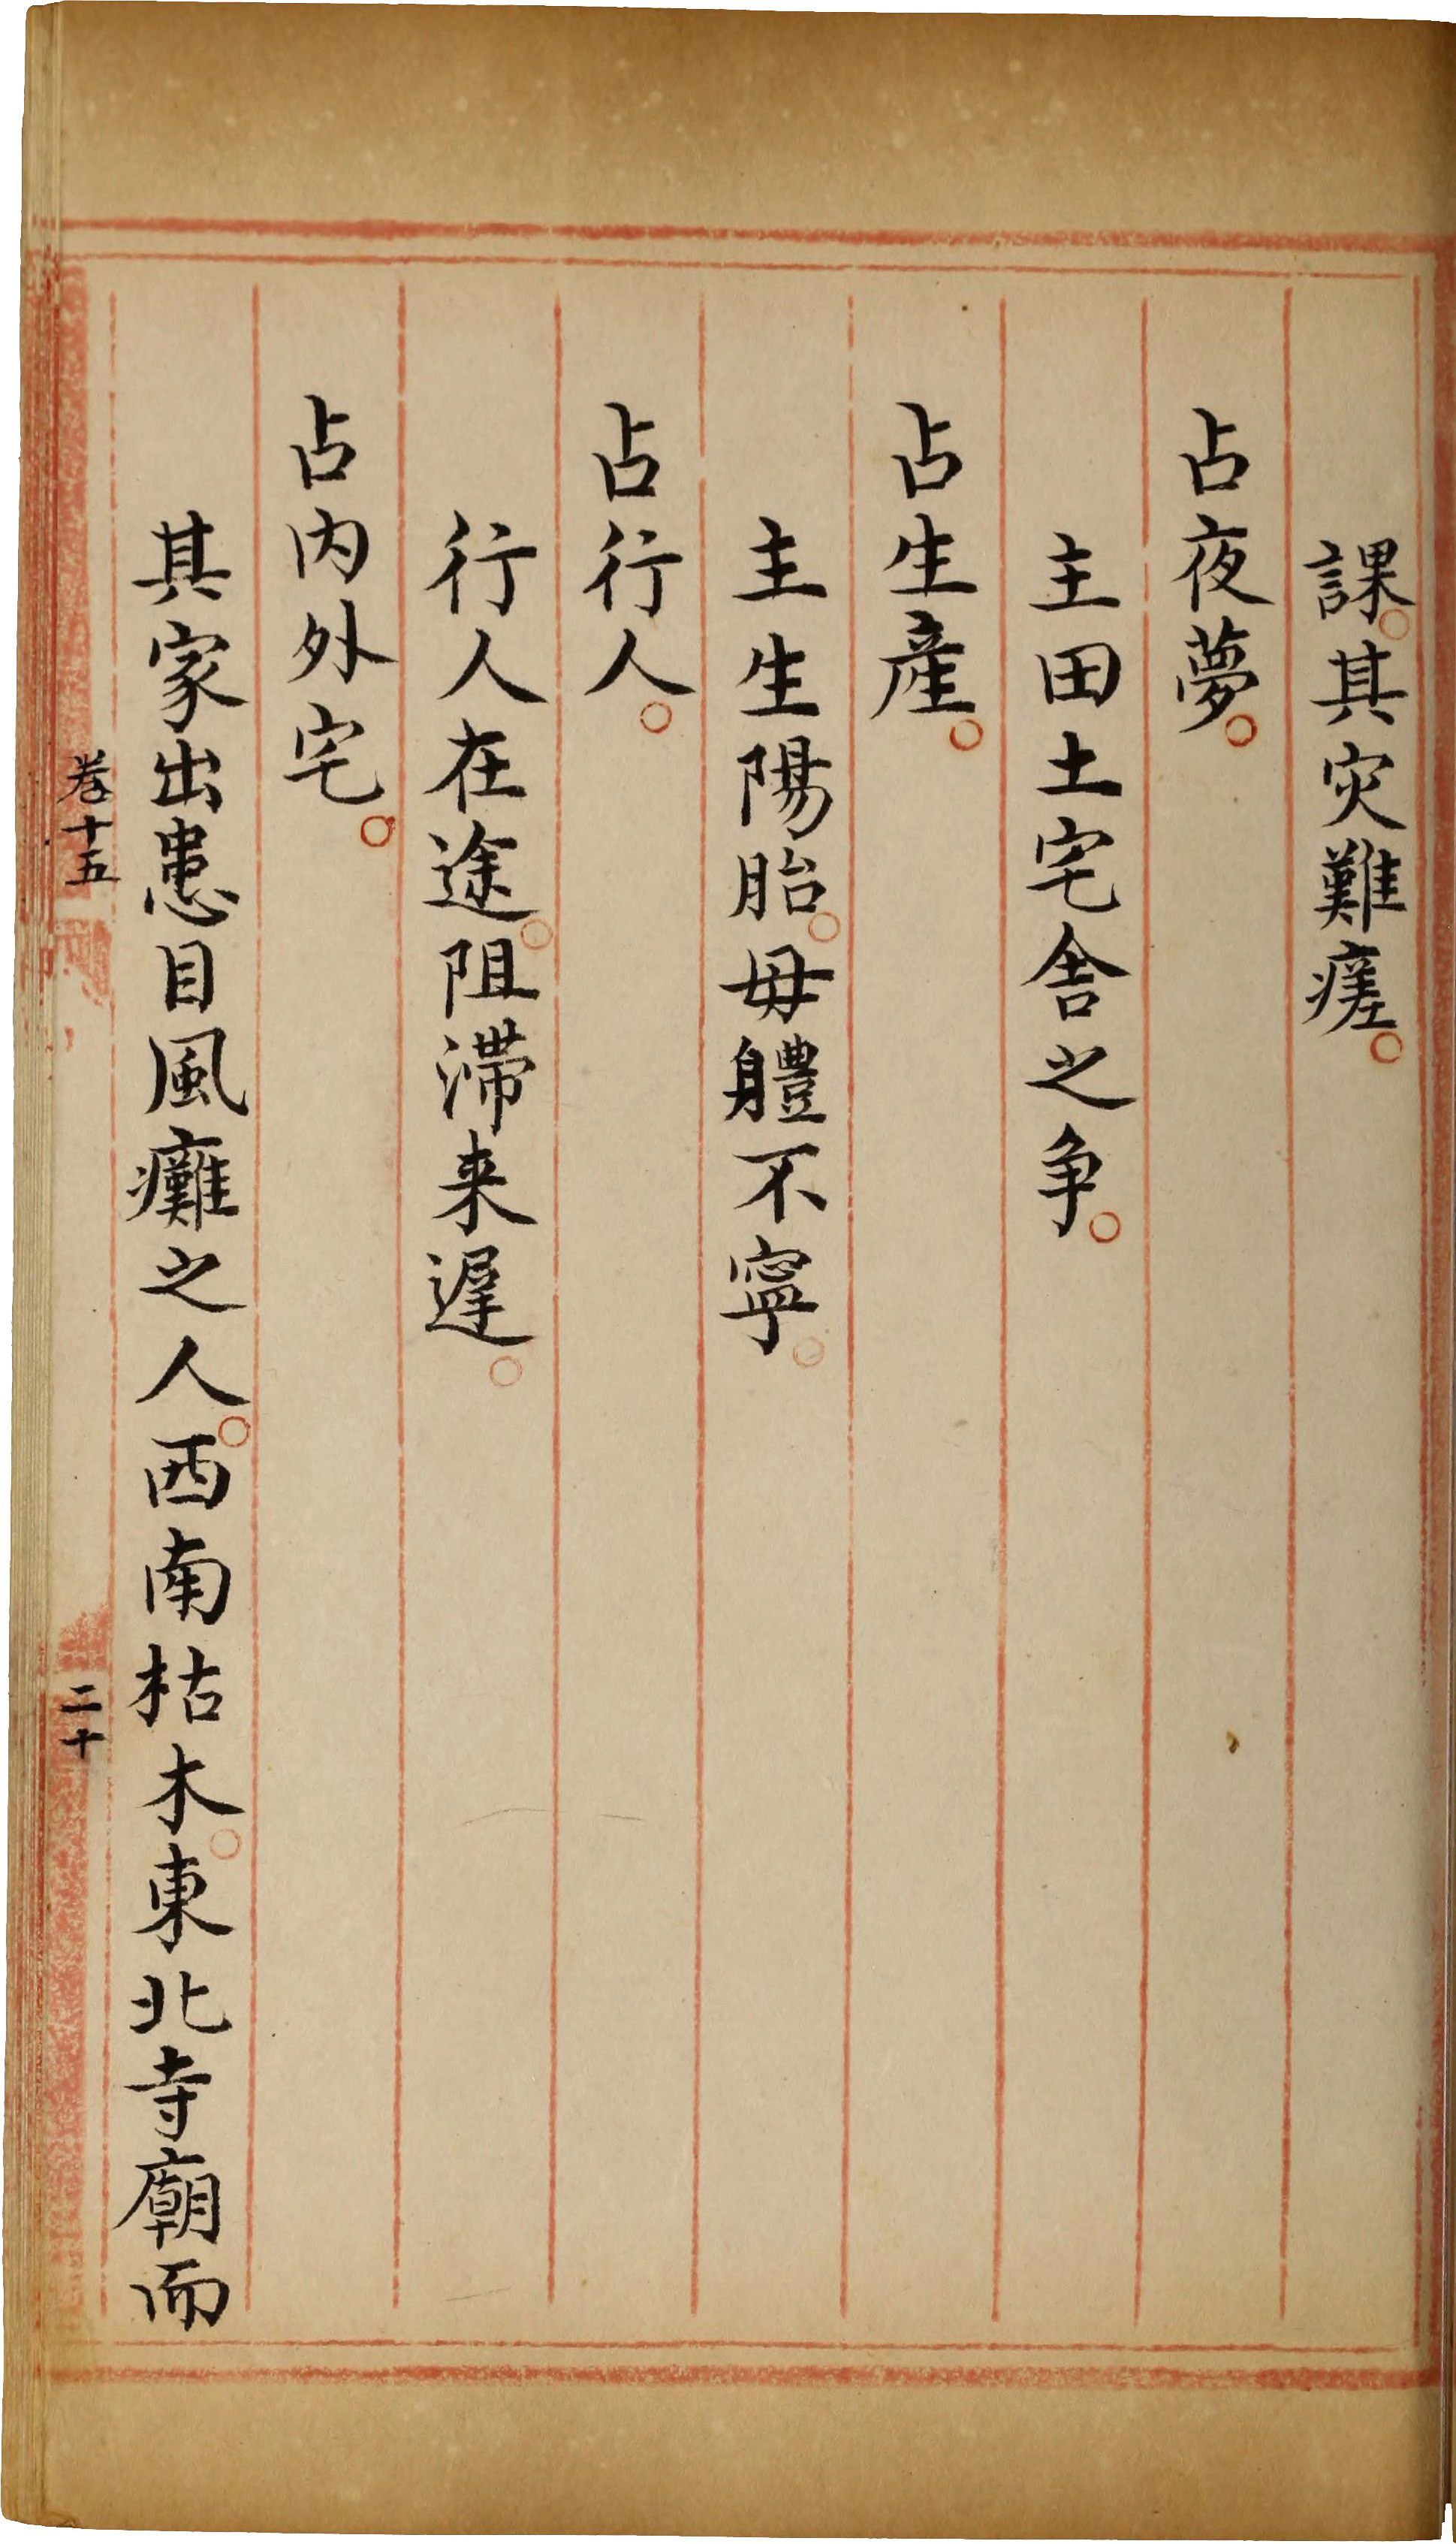 課。其灾難瘥。
占夜夢。
主田土宅舍之争。
占生產。
主生陽胎。母軆不寧。
占行人。
行人在途。阻滯来遲。
占内外宅。
其家出患目風癱之人。西南枯木。東北寺廟而
卷十五
二十